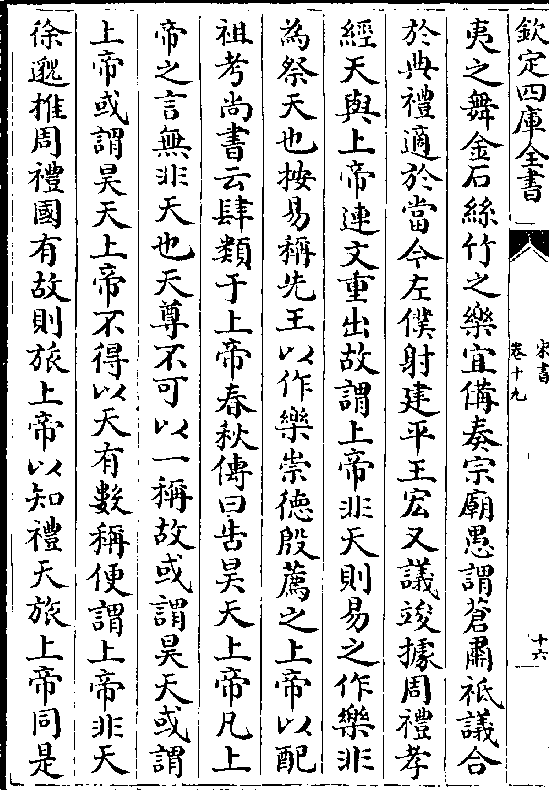 欽定四庫全書
宋書
卷十九
十六
夷之舞金石絲竹之樂宜備奏宗廟愚謂蒼肅祗議合
於典禮適於當今左僕射建平王宏又議竣據周禮孝
經天與上帝連文重出故謂上帝非天則易之作樂非
為祭天也按易稱先王以作樂崇德殷薦之上帝以配
祖考尚書云肆類于上帝春秋傳曰告昊天上帝凡上
帝之言無非天也天尊不可以一稱故或謂昊天或謂
上帝或謂昊天上帝不得以天有數稱便謂上帝非天
徐邈推周禮國有故則旅上帝以知禮天旅上帝同是